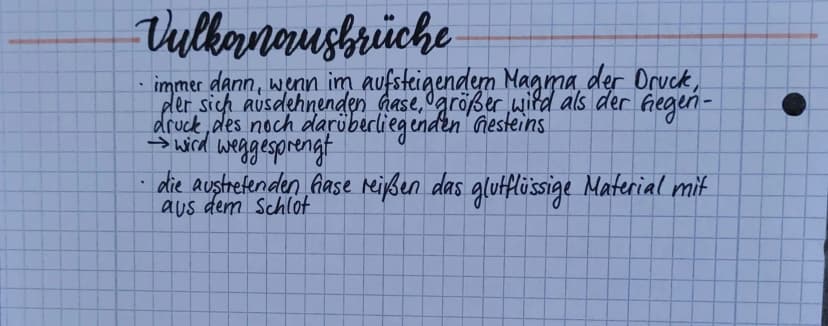 Vulkanausbrüche
· immer dann, wenn im aufsteigendem Magma der Druck,
der sich ausdehnenden Gase, größer wird als der Gegen-
druck des noch darüberliegenden Gesteins
→ wird weggesprengt
· die austretenden Gase reißen das glutflüssige Material mit
aus dem Schlot